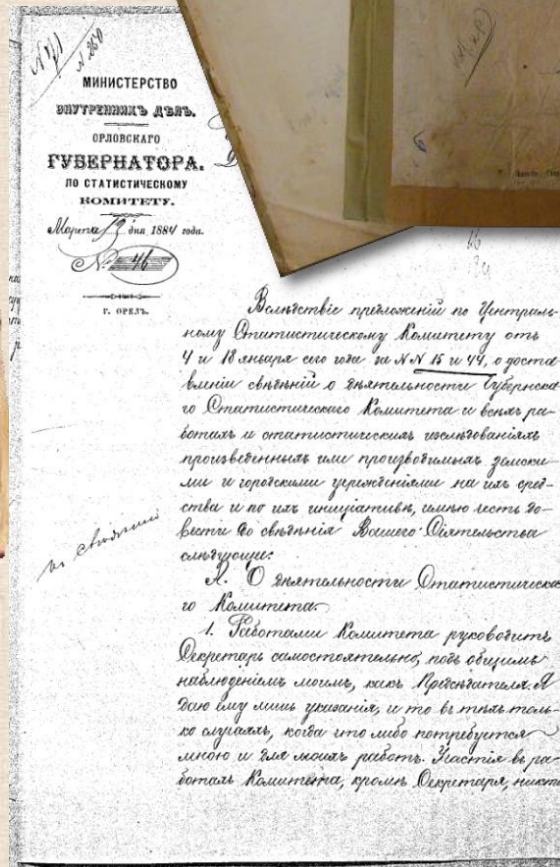 МИНИСТЕРСТВО
ВНУТРЕННИХЪ ДѢЛЪ.
ОРЛОВСКАГО
ГУБЕРНАТОРА.
ПО СТАТИСТИЧЕСКОМУ
КОМИТЕТУ.
Марта 13 дня 1884 года.
№ 46
г. ОРЕЛЪ.
Вслѣдствіе предложеній по Централь-
ному Статистическому Комитету отъ
4 и 18 января сего года за №№ 15 и 44, о доста-
вленіи свѣдѣній о дѣятельности Губернска-
го Статистическаго Комитета и всѣхъ ра-
ботахъ и статистическихъ изслѣдованіяхъ
произведенныхъ или производимыхъ земски-
ми и городскими учрежденіями на ихъ сред-
ства и по ихъ иниціативѣ, имѣю честь до-
вести до свѣдѣнія Вашего Сіятельства
слѣдующее:
А. О дѣятельности Статистическа
го Комитета.
1. Работами Комитета руководитъ
Секретарь самостоятельно, подъ общимъ
наблюденіемъ моимъ, какъ Предсѣдателя. Я
даю ему лишь указанія, и то въ тѣхъ толь-
ко случаяхъ, когда что либо потребуется
мною и для моихъ работъ. Участія въ ра-
ботахъ Комитета, кромѣ Секретаря, никто